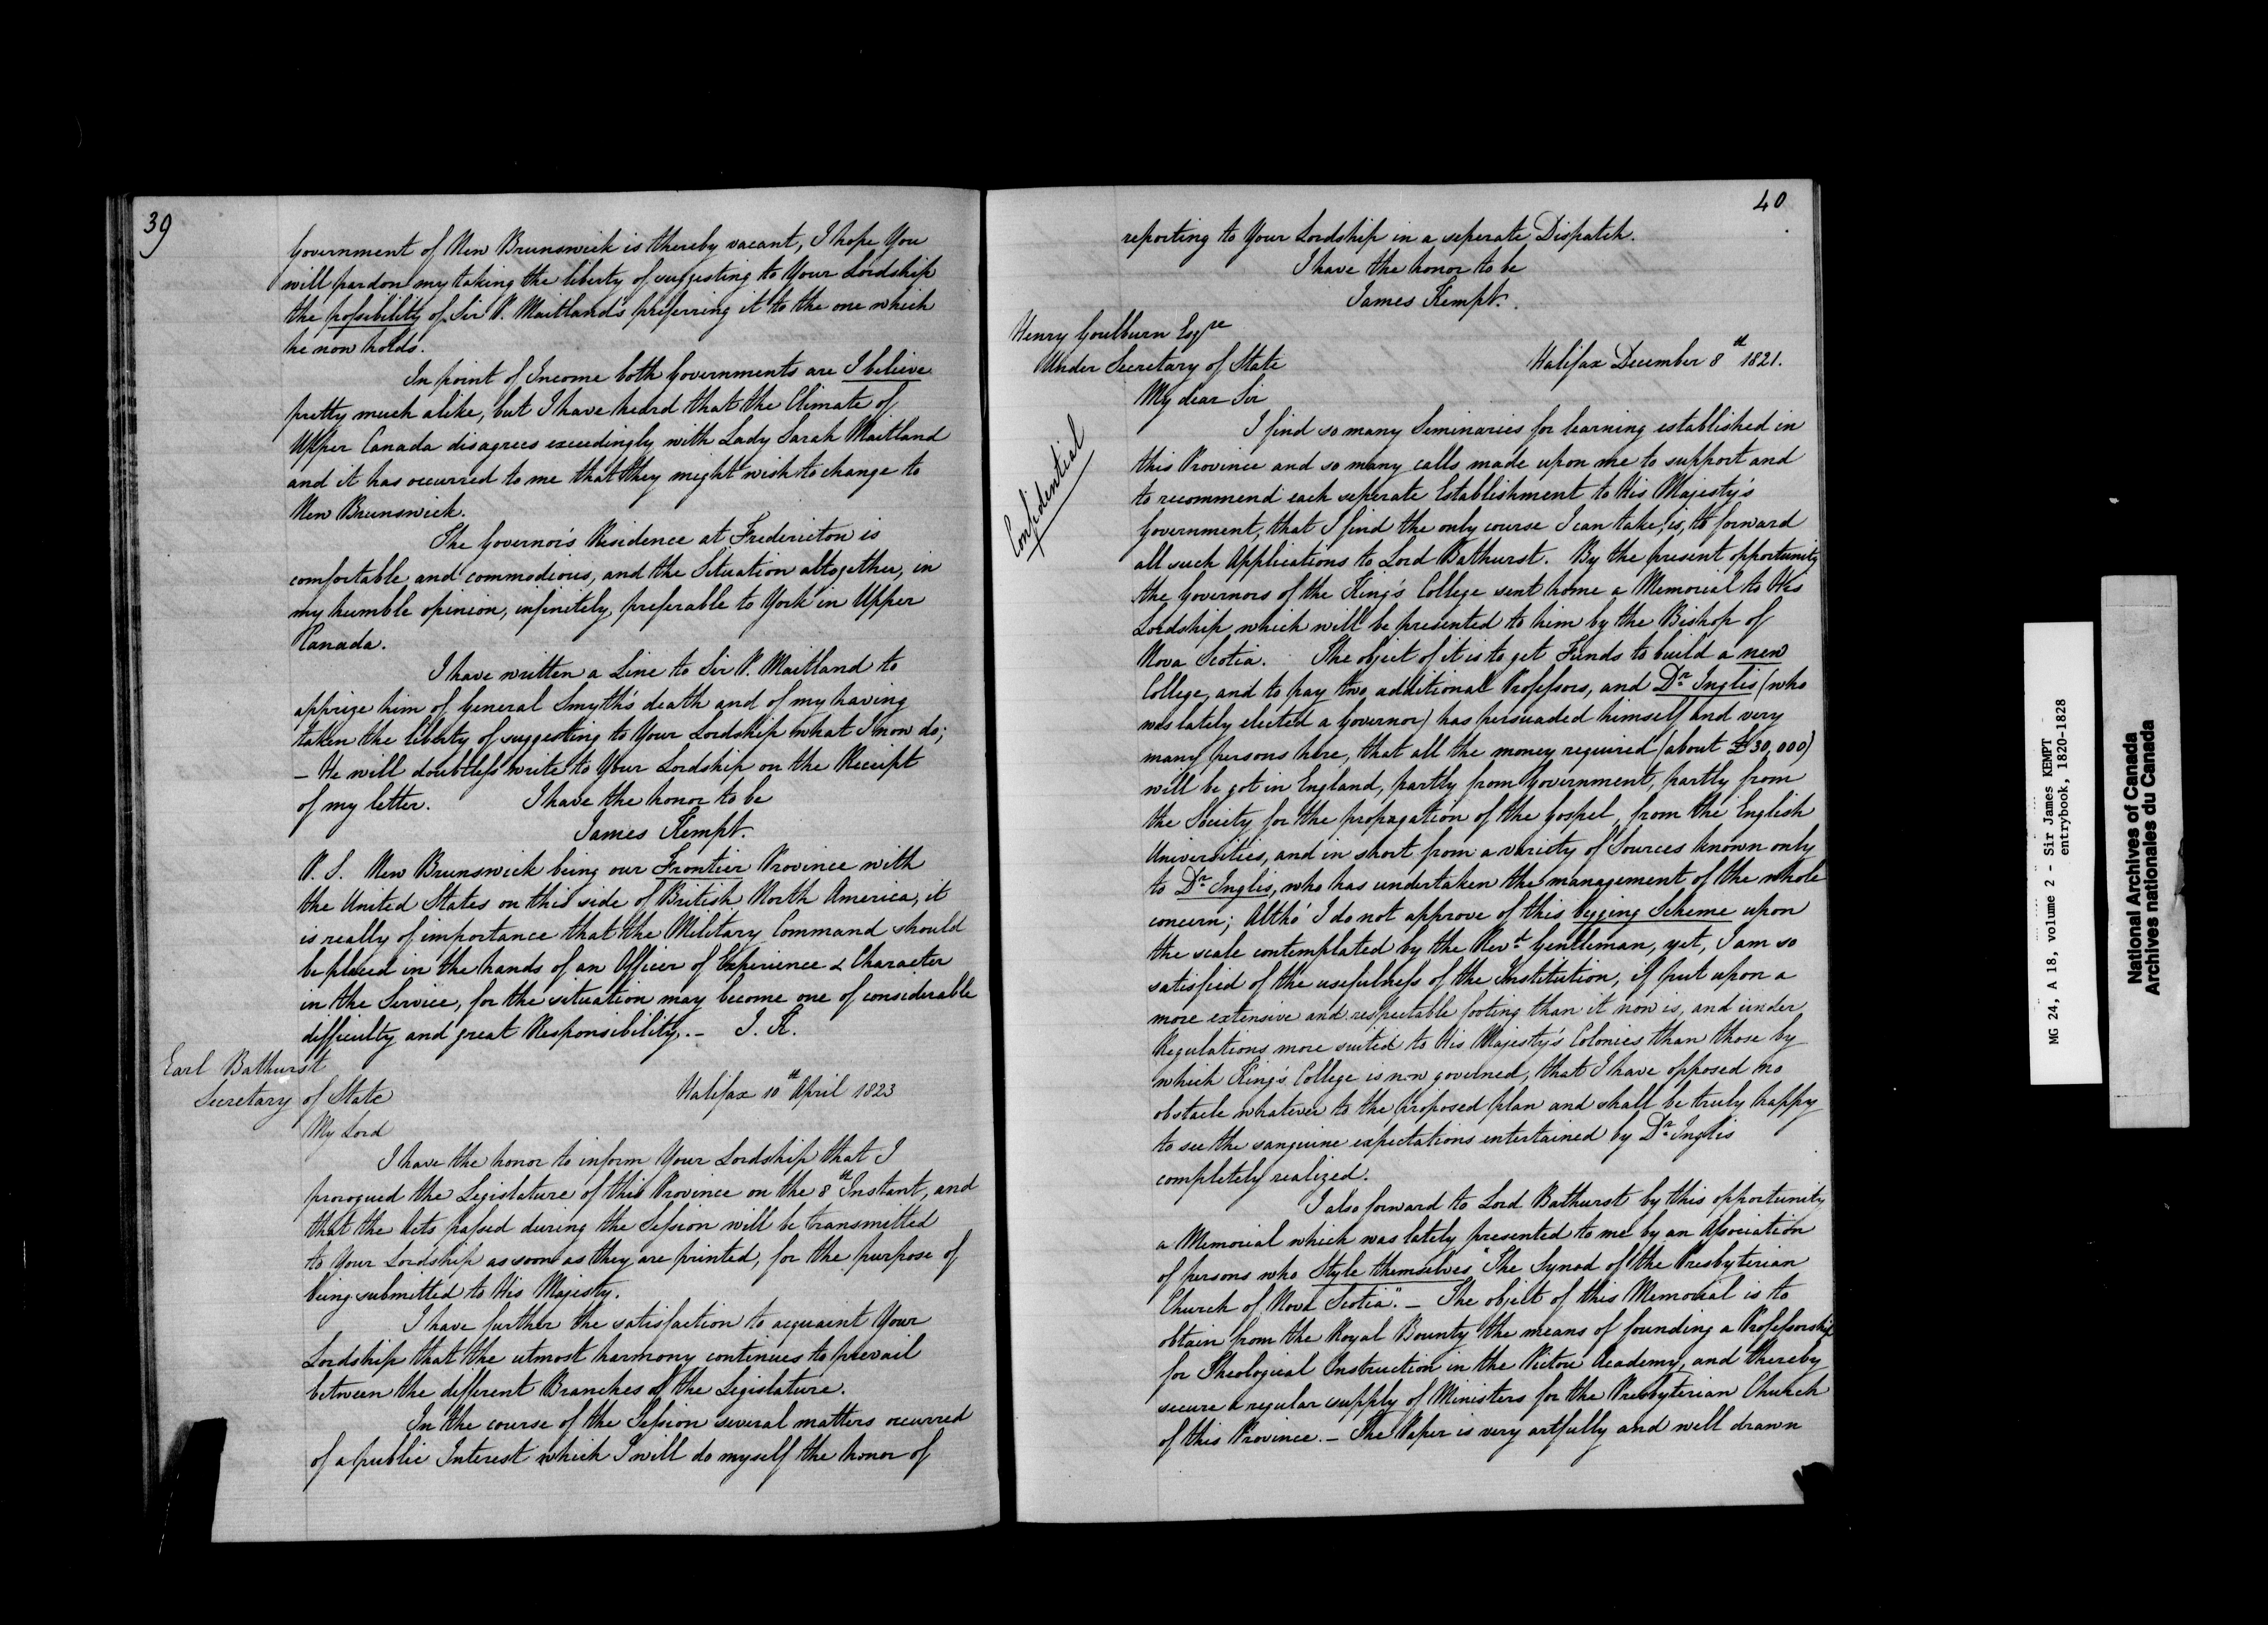 39
Government of New Brunswick is thereby vacant, I hope You
will pardon my taking the liberty of suggesting to Your Lordship
the possibility of Sir P. Maitland's preferring it to the one which
he now holds.
In point of Income both Governments are I believe
pretty much alike, but I have heard that the Climate of
Upper Canada disagrees exceedingly with Lady Sarah Maitland
and it has occurred to me that they might wish to change to
New Brunswick.
The Governor's Residence at Fredericton is
comfortable and commodious, and the Situation altogether, in
my humble opinion, infinitely, preferable to York in Upper
Canada.
I have written a Line to Sir P. Maitland to
apprize him of General Smyth's death and of my having
taken the liberty of suggesting to Your Lordship what I now do;
– He will doubtless write to Your Lordship on the Receipt
of my letter. I have the honor to be
James Kempt.
P. S. New Brunswick being our Frontier Province with
the United States on this side of British North America, it
is really of importance that the Military Command should
be placed in the hands of an Officer of Experience & Character
in the Service, for the situation may become one of considerable
difficulty and great Responsibility. – J. K.
Earl Bathurst
Secretary of State
Halifax 10th April 1823
My Lord
I have the honor to inform Your Lordship that I
prorogued the Legislature of this Province on the 8th Instant, and
that the Acts passed during the Session will be transmitted
to Your Lordship as soon as they are printed, for the purpose of
being submitted to His Majesty.
I have further the satisfaction to acquaint Your
Lordship that the utmost harmony continues to prevail
between the different Branches of the Legislature.
In the course of the Session several matters occurred
of a public Interest which I will do myself the honor of
40
reporting to Your Lordship in a seperate Dispatch.
I have the honor to be
James Kempt.
Henry Goulburn Esqre
Under Secretary of State
Halifax December 8th 1821.
My dear Sir
Confidential
I find so many Seminaries for learning established in
this Province and so many calls made upon me to support and
to recommend each seperate Establishment to His Majesty's
Government, that I find the only course I can take, is, to forward
all such Applications to Lord Bathurst. By the present opportunity
the Governors of the King's College sent home a Memorial to His
Lordship which will be presented to him by the Bishop of
Nova Scotia. The object of it is to get Funds to build a new
College, and to pay two additional Professors, and Dr. Inglis (who
was lately elected a Governor) has persuaded himself and very
many persons here, that all the money required (about £30,000)
will be got in England, partly from Government, partly from
the Society for the propagation of the Gospel, from the English
Universities, and in short from a variety of Sources known only
to Dr. Inglis, who has undertaken the management of the whole
concern; Altho' I do not approve of this begging Scheme upon
the scale contemplated by the Revd. Gentleman, yet, I am so
satisfied of the usefulness of the Institution, if put upon a
more extensive and respectable footing than it now is, and under
Regulations more suited to His Majesty's Colonies than those by
which King's College is now governed, that I have opposed no
obstacle whatever to the proposed plan and shall be truly happy
to see the sanguine expectations entertained by Dr. Inglis
completely realized.
I also forward to Lord Bathurst by this opportunity
a Memorial which was lately presented to me by an Association
of persons who Style themselves "The Synod of the Presbyterian
Church of Nova Scotia". – The object of this Memorial is to
obtain from the Royal Bounty the means of founding a Professorship
for Theological Instruction in the Pictou Academy, and thereby
secure a regular supply of Ministers for the Presbyterian Church
of this Province. – The Paper is very artfully and well drawn
MG 24, A 18, volume 2 - Sir James KEMPT
entrybook, 1820-1828
National Archives of Canada
Archives nationales du Canada